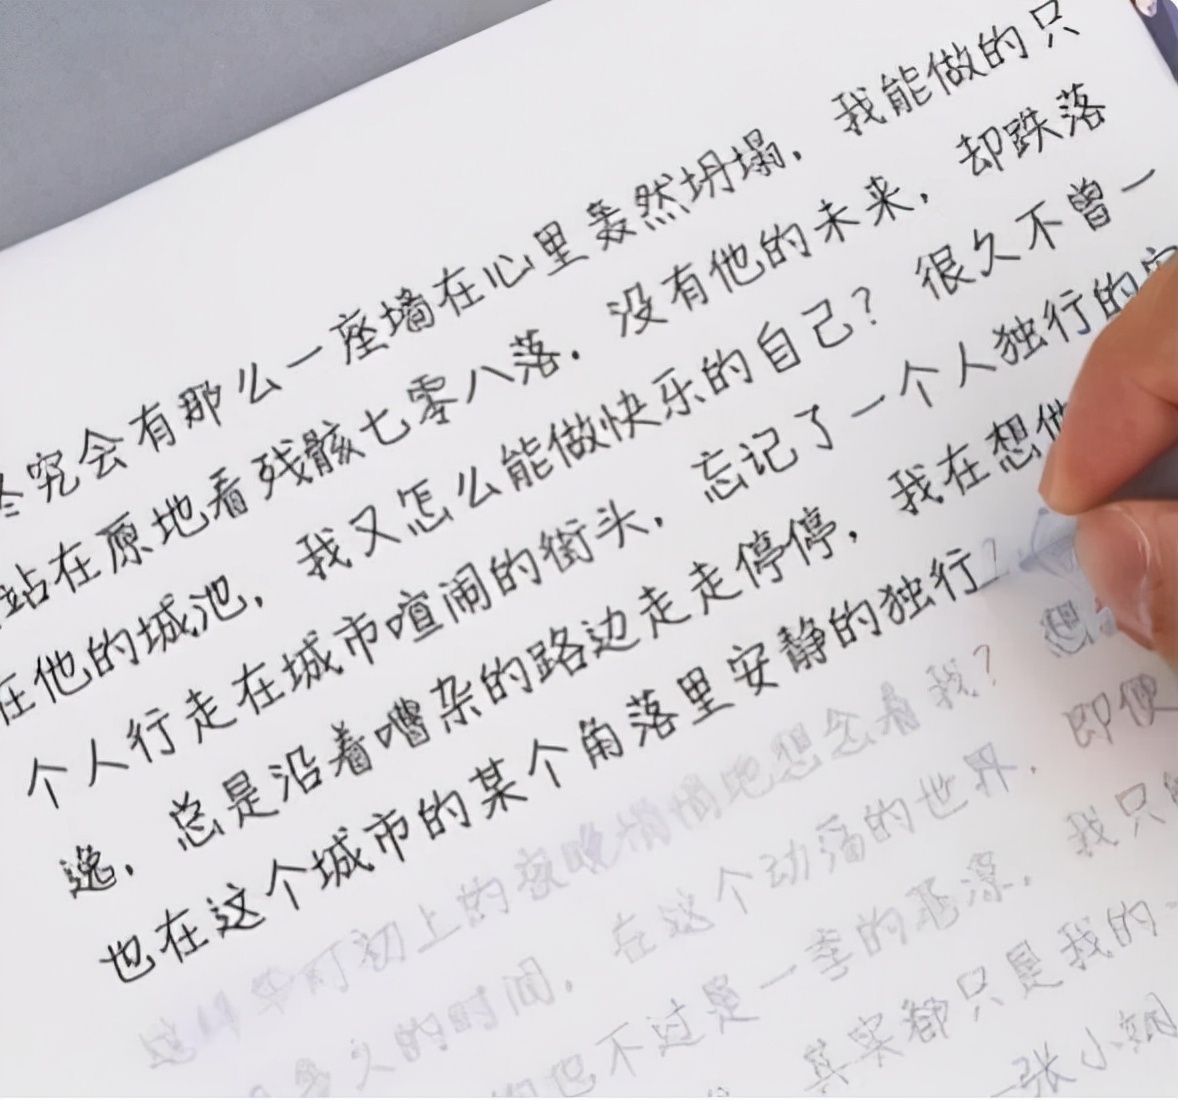 终究会有那么一座墙在心里轰然坍塌，我能做的只
站在原地看残骸七零八落．没有他的未来，却跌落
在他的城池，我又怎么能做快乐的自己？很久不曾一
个人行走在城市喧闹的街头，忘记了一个人独行的
逸，总是沿着嘈杂的路边走走停停，我在想他
也在这个城市的某个角落里安静的独行？
华灯初上的夜晚悄悄地想念着我？想
多久的时间，在这个动荡的世界．即便
不过是一季的 我只
其实都只是我的一
一张小